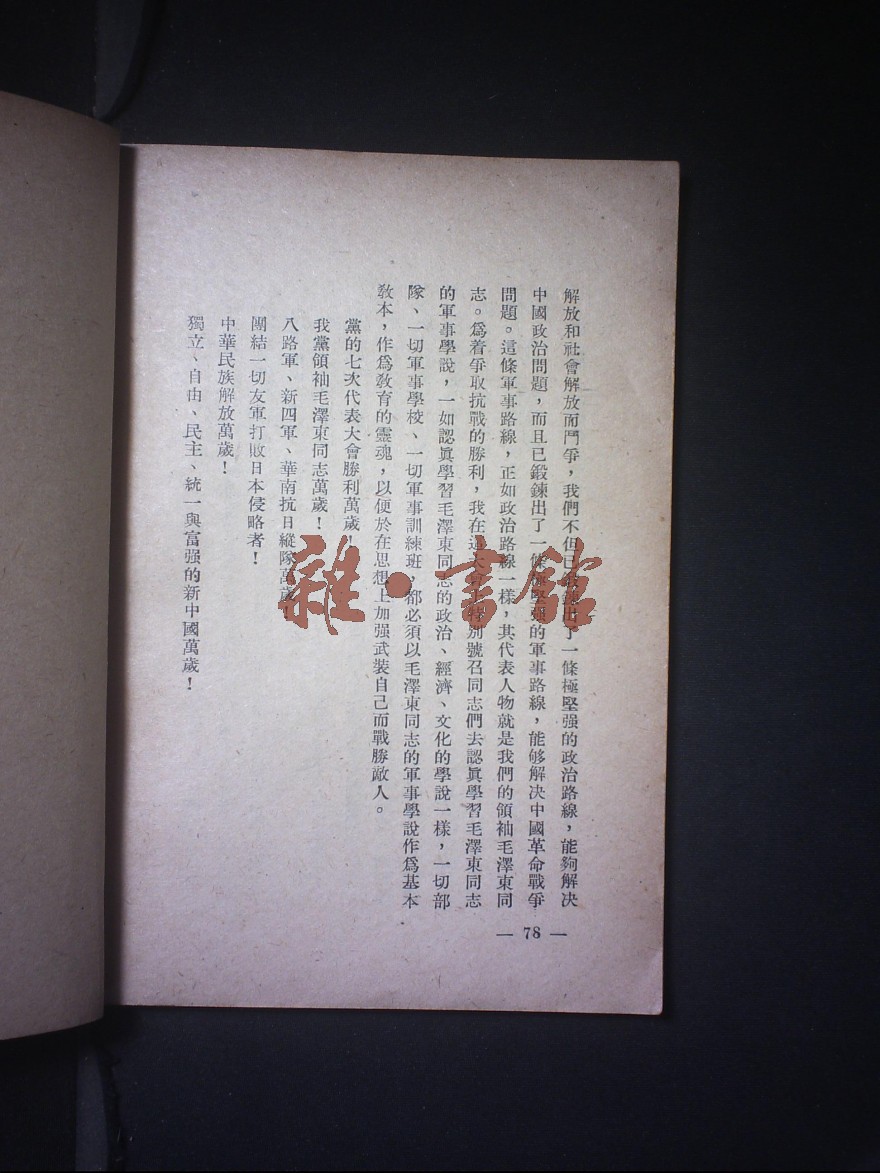 解放和社會解放而鬥爭，我們不但已鍛鍊出了一條極堅强的政治路線，能夠解决
中國政治問題，而且已鍛鍊出了一條極堅强的軍事路線，能够解决中國革命戰爭
問題。這條軍事路線，正如政治路線一樣，其代表人物就是我們的領袖毛澤東同
志。爲着爭取抗戰的勝利，我在這大會特別號召同志們去認眞學習毛澤東同志
的軍事學説，一如認眞學習毛澤東同志的政治、經濟、文化的學説一樣，一切部
隊、一切軍事學校、一切軍事訓練班，都必須以毛澤東同志的軍事學說作爲基本
敎本，作爲敎育的靈魂，以便於在思想上加强武装自己而戰勝敵人。
黨的七次代表大會勝利萬歲！
我黨領袖毛澤東同志萬歲！
八路軍、新四軍、華南抗日縱隊萬歲！
團結一切友軍打敗日本侵略者！
中華民族解放萬歲！
獨立、自由、民主、統一與富强的新中國萬歲！
— 78 —
雜·書館